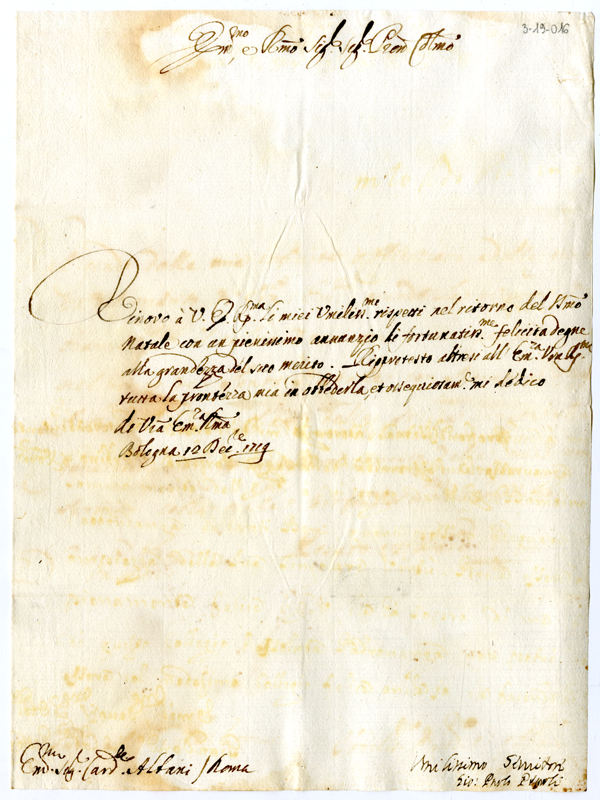 3-19-016
Em.mo, e Rmo Sig.r Sig.r Pron Colmo
Rinovo à V. E. Rma li miei Umiliss.mi rispetti nel ritorno del Smo
Natale con un pienissimo annunzio di fortunatiss.me felicità degne
alla grandezza del suo merito. Le protesto altresi all' Em.za Vra Rma
tutta la prontezza mia in obbedirla, et ossequiosam.te mi dedico
di Vra Em.za Rma
Bologna 12 Dec.e 1719
Em.mo Sig.r Card.le Albani / Roma
Umilissimo Servitore
Gio: Paolo Pepoli